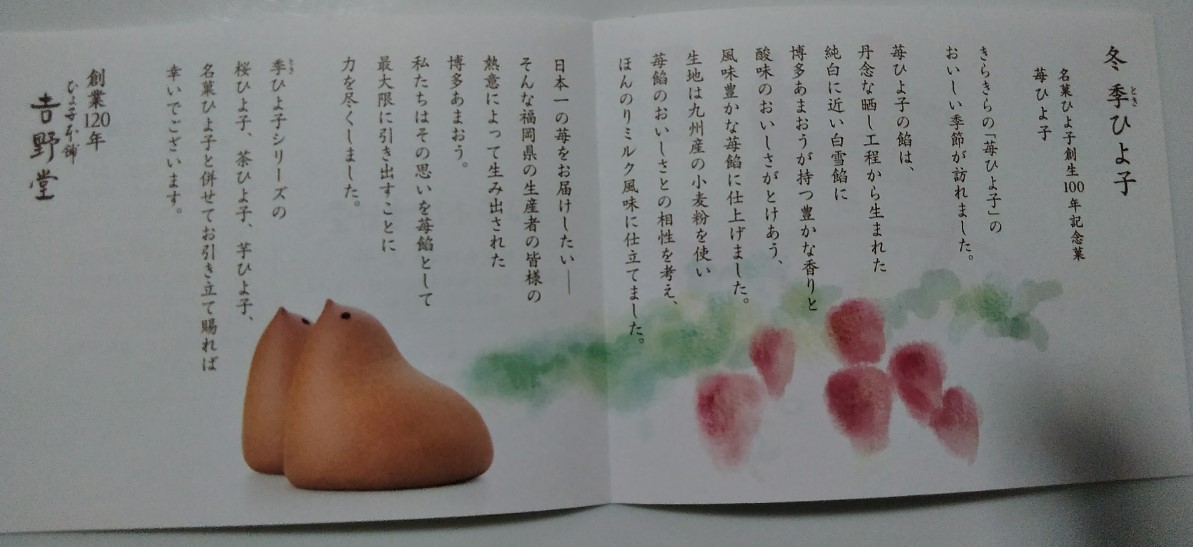 冬 季ひよ子
とき
名菓ひよ子創生100年記念菓
苺ひよ子
きらきらの「苺ひよ子」の
おいしい季節が訪れました。
苺ひよ子の餡は、
丹念な晒し工程から生まれた
純白に近い白雪餡に
博多あまおうが持つ豊かな香りと
酸味のおいしさがとけあう、
風味豊かな苺餡に仕上げました。
生地は九州産の小麦粉を使い
苺餡のおいしさとの相性を考え、
ほんのりミルク風味に仕立てました。
日本一の苺をお届けしたい──
そんな福岡県の生産者の皆様の
熱意によって生み出された
博多あまおう。
私たちはその思いを苺餡として
最大限に引き出すことに
力を尽くしました。
季ひよ子シリーズの
とき
桜ひよ子、茶ひよ子、芋ひよ子、
名菓ひよ子と併せてお引き立て賜れば
幸いでございます。
創業120年
ひよ子本舗
吉野堂